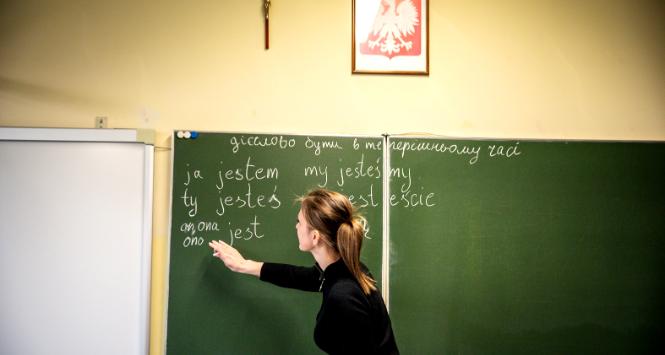 дієслово бути в теперішньому часі
ja jestem my jesteśmy
ty jesteś jesteście
on, ona jest
ono